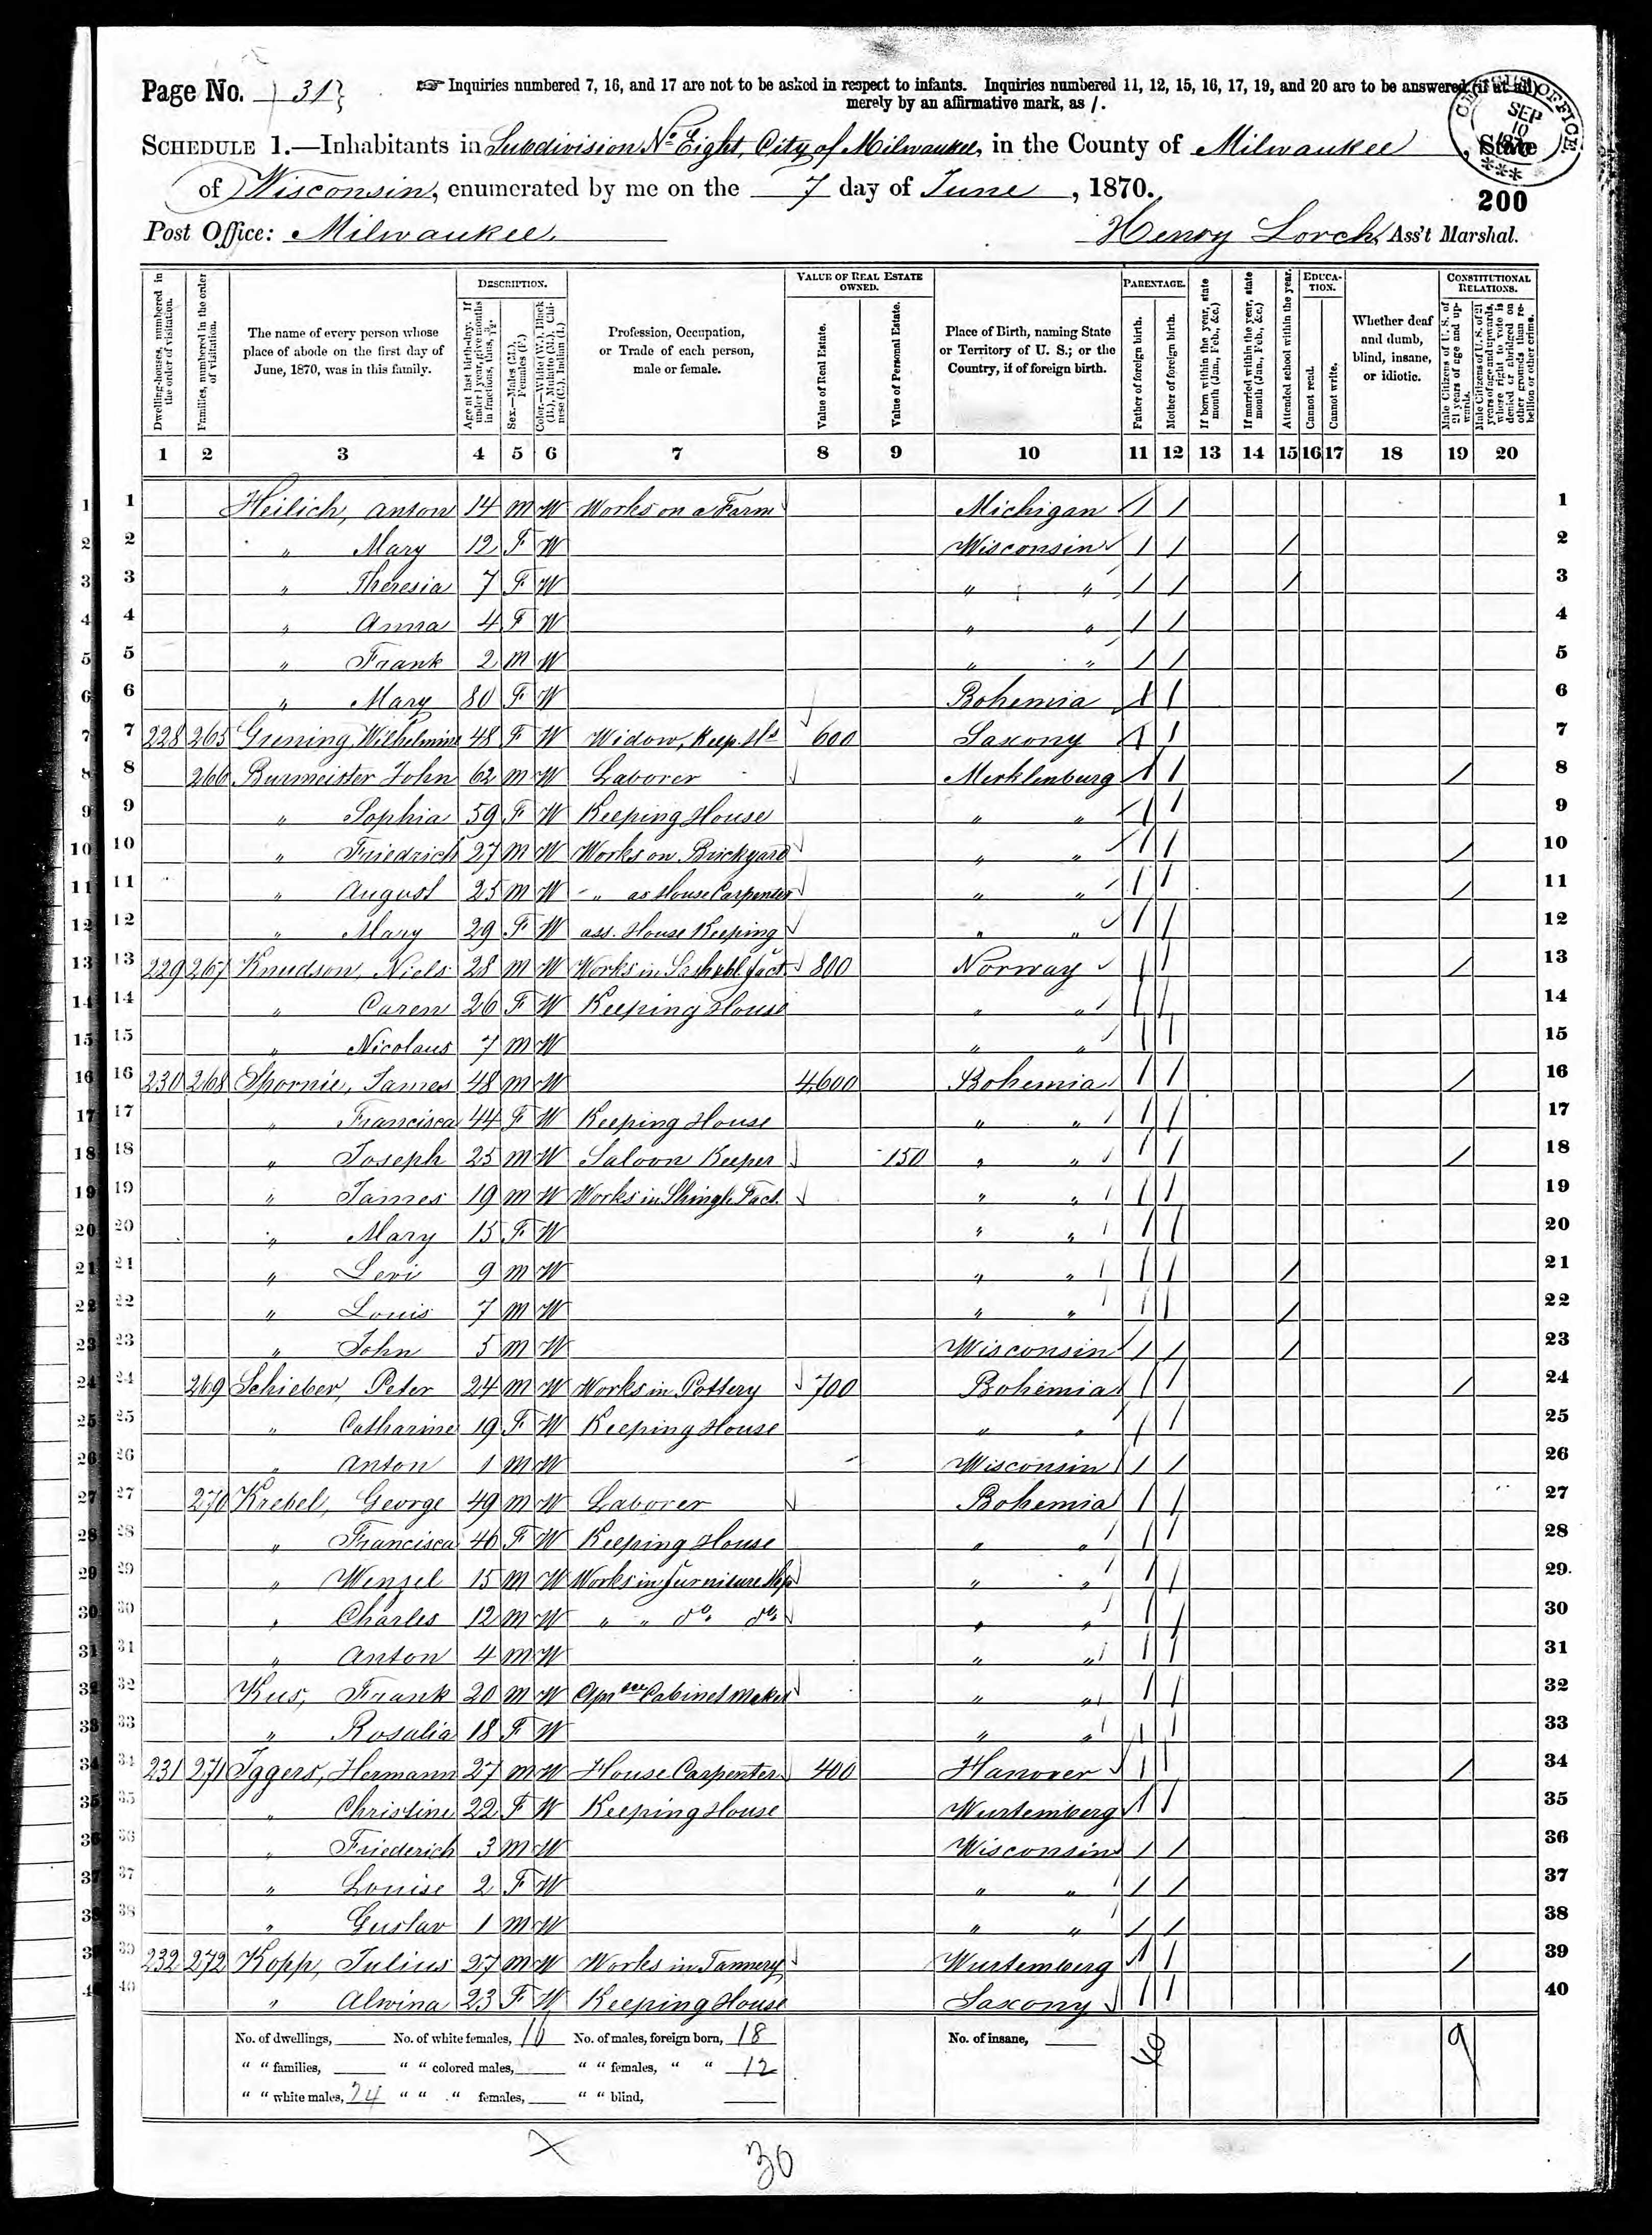 Page No. 31
☞ Inquiries numbered 7, 16, and 17 are not to be asked in respect to infants. Inquiries numbered 11, 12, 15, 16, 17, 19, and 20 are to be answered (if at all) merely by an affirmative mark, as /.
CENSUS OFFICE. SEP 10 1870 ***
SCHEDULE 1.—Inhabitants in Subdivision No Eight, City of Milwaukee, in the County of Milwaukee, State
of Wisconsin, enumerated by me on the 7 day of June, 1870.
200
Post Office: Milwaukee. Henry Lorch, Ass't Marshal.
Dwelling-houses, numbered in the order of visitation.
Families, numbered in the order of visitation.
The name of every person whose place of abode on the first day of June, 1870, was in this family.
DESCRIPTION.
Age at last birth-day. If under 1 year, give months in fractions, thus, 3/12.
Sex.—Males (M.), Females (F.)
Color.—White (W.), Black (B.), Mulatto (M.), Chinese (C.), Indian (I.)
Profession, Occupation, or Trade of each person, male or female.
VALUE OF REAL ESTATE OWNED.
Value of Real Estate.
Value of Personal Estate.
Place of Birth, naming State or Territory of U. S.; or the Country, if of foreign birth.
PARENTAGE.
Father of foreign birth.
Mother of foreign birth.
If born within the year, state month (Jan., Feb., &c.)
If married within the year, state month (Jan., Feb., &c.)
Attended school within the year.
EDUCATION.
Cannot read.
Cannot write.
Whether deaf and dumb, blind, insane, or idiotic.
CONSTITUTIONAL RELATIONS.
Male Citizens of U. S. of 21 years of age and upwards.
Male Citizens of U. S. of 21 years of age and upwards, where right to vote is denied or abridged on other grounds than rebellion or other crime.
1 2 3 4 5 6 7 8 9 10 11 12 13 14 15 16 17 18 19 20
1 Heilich, Anton 14 M W Works on a Farm Michigan / / 1
2 " Mary 12 F W Wisconsin / / / 2
3 " Theresia 7 F W " " / / / 3
4 " Anna 4 F W " " / / 4
5 " Frank 2 M W " " / / 5
6 " Mary 80 F W Bohemia / / 6
7 228 265 Grening, Wilhelmine 48 F W Widow, Keep. Hs 600 Saxony / / 7
8 266 Burmeister John 62 M W Laborer Mecklenburg / / / 8
9 " Sophia 59 F W Keeping House " " / / 9
10 " Friedrich 27 M W Works on Brickyard " " / / / 10
11 " August 25 M W " as House Carpenter " " / / / 11
12 " Mary 29 F W ass. House Keeping " " / / 12
13 229 267 Knudson, Niels 28 M W Works in Sash & bl fact. 800 Norway / / / 13
14 " Caren 26 F W Keeping House " " / / 14
15 " Nicolaus 7 M W " " / / 15
16 230 268 Spornie, James 48 M W 4600 Bohemia / / / 16
17 " Francisca 44 F W Keeping House " " / / 17
18 " Joseph 25 M W Saloon Keeper 150 " " / / / 18
19 " James 19 M W Works in Shingle Fact. " " / / 19
20 " Mary 15 F W " " / / 20
21 " Levi 9 M W " " / / / 21
22 " Louis 7 M W " " / / / 22
23 " John 5 M W Wisconsin / / / 23
24 269 Schieber, Peter 24 M W Works in Pottery 700 Bohemia / / / 24
25 " Catharine 19 F W Keeping House " " / / 25
26 " Anton 1 M W Wisconsin / / 26
27 270 Krebel, George 49 M W Laborer Bohemia / / 27
28 " Francisca 46 F W Keeping House " " / / 28
29 " Wenzel 15 M W Works in furniture Shop " " / / 29.
30 " Charles 12 M W " " do do " " / / 30
31 " Anton 4 M W " " / / 31
32 Kus, Frank 20 M W Cabinet Maker " " / / 32
33 " Rosalia 18 F W " " / / 33
34 231 271 Iggers, Hermann 27 M W House Carpenter 400 Hanover / / / 34
35 " Christine 22 F W Keeping House Wurtemberg / / 35
36 " Friederich 3 M W Wisconsin / / 36
37 " Louise 2 F W " " / / 37
38 " Gustav 1 M W " " / / 38
39 232 272 Kopp, Julius 27 M W Works in Tannery Wurtemberg / / / 39
40 " Alwina 23 F W Keeping House Saxony / / 40
No. of dwellings, No. of white females, 16 No. of males, foreign born, 18 No. of insane, 40 9
" " families, " " colored males, " " females, " " 12
" " white males, 24 " " " females, " " blind,
30